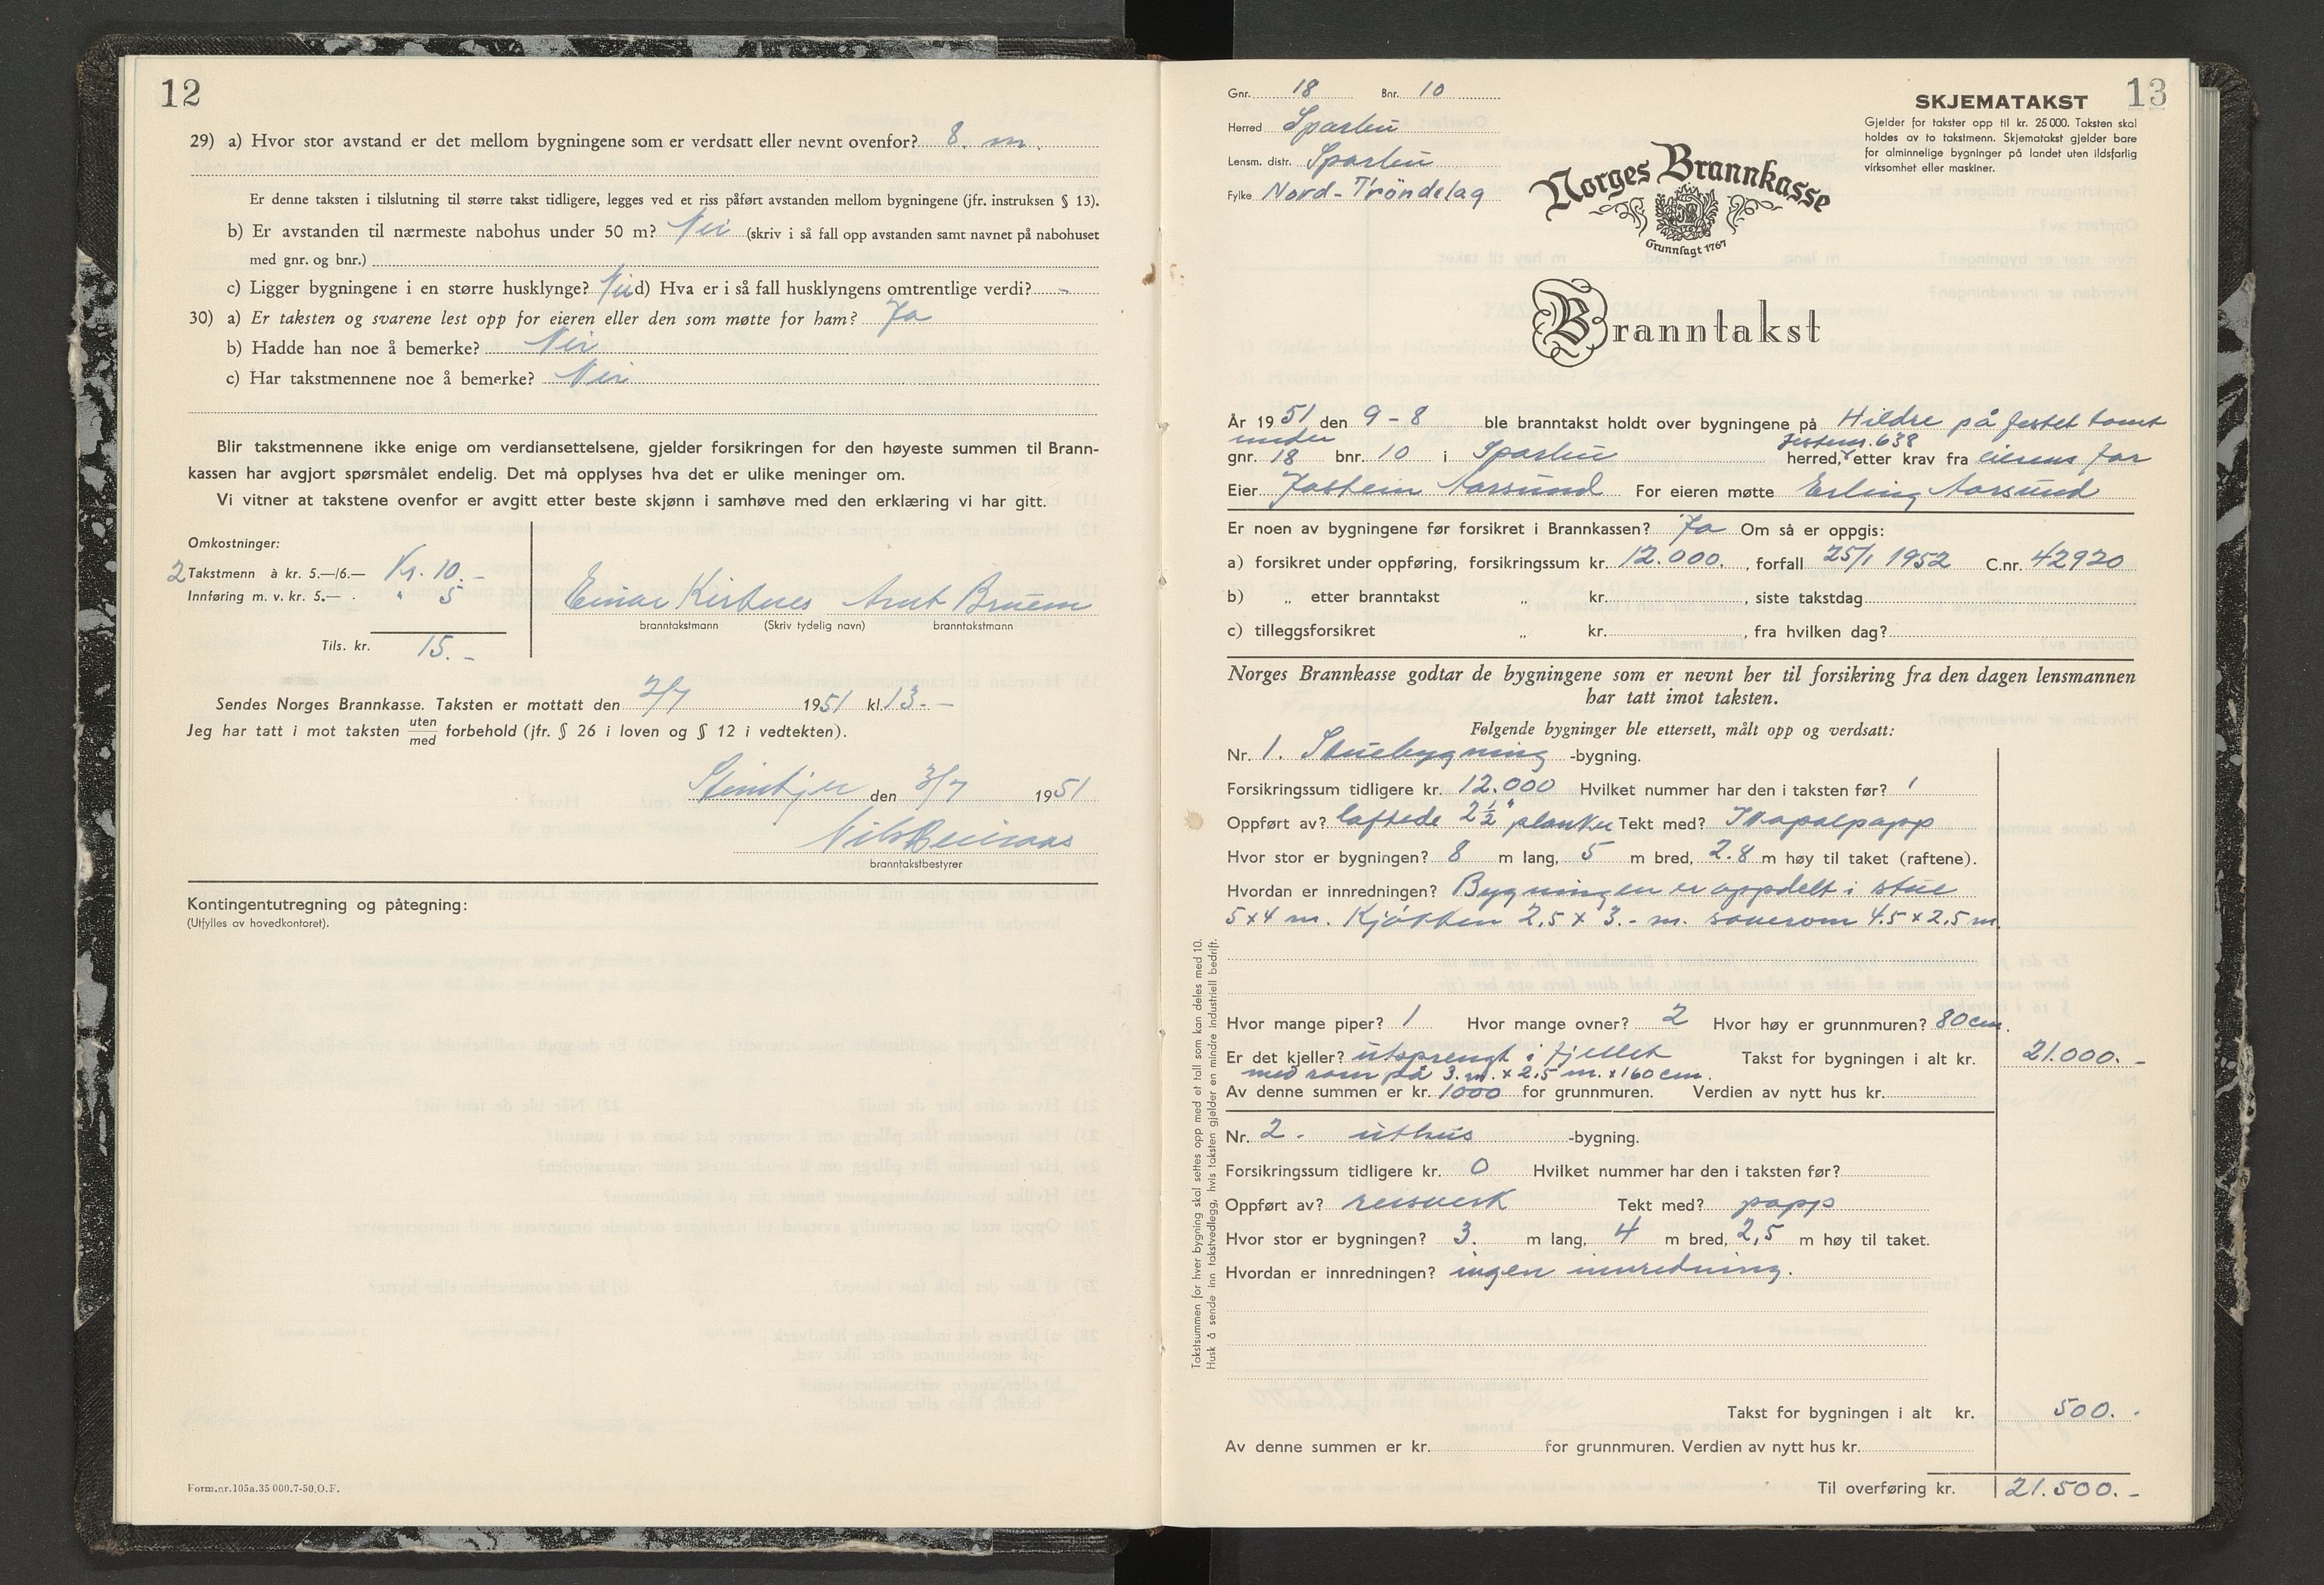 12
29) a) Hvor stor avstand er det mellom bygningene som er verdsatt eller nevnt ovenfor? 8. m.
Er denne taksten i tilslutning til større takst tidligere, legges ved et riss påført avstanden mellom bygningene (jfr. instruksen § 13).
b) Er avstanden til nærmeste nabohus under 50 m? Nei (skriv i så fall opp avstanden samt navnet på nabohuset
med gnr. og bnr.)
c) Ligger bygningene i en større husklynge? Nei d) Hva er i så fall husklyngens omtrentlige verdi? -
30) a) Er taksten og svarene lest opp for eieren eller den som møtte for ham? Ja
b) Hadde han noe å bemerke? Nei
c) Har takstmennene noe å bemerke? Nei
Blir takstmennene ikke enige om verdiansettelsene, gjelder forsikringen for den høyeste summen til Brann-
kassen har avgjort spørsmålet endelig. Det må opplyses hva det er ulike meninger om.
Vi vitner at takstene ovenfor er avgitt etter beste skjønn i samhøve med den erklæring vi har gitt.
Omkostninger:
2 Takstmenn à kr. 5.—/6.— Kr. 10.-
Innføring m. v. kr. 5.— . " 5
Tils. kr. 15.-
Einar Kirknes Arnt Bruem
branntakstmann (Skriv tydelig navn) branntakstmann
Sendes Norges Brannkasse. Taksten er mottatt den 2/7 1951 kl. 13.-
Jeg har tatt i mot taksten uten/med forbehold (jfr. § 26 i loven og § 12 i vedtekten).
Steinkjer den 3/7 1951
Nils
branntakstbestyrer
Kontingentutregning og påtegning:
(Utfylles av hovedkontoret).
Form.nr.105a.35 000.7-50.O.F.
13
Gnr. 18 Bnr. 10
Herred Sparbu
Lensm. distr. Sparbu
Fylke Nord-Trøndelag
SKJEMATAKST
Gjelder for takster opp til kr. 25 000. Taksten skal
holdes av to takstmenn. Skjematakst gjelder bare
for alminnelige bygninger på landet uten ildsfarlig
virksomhet eller maskiner.
Norges Brannkasse
Grunnlagt 1767
Branntakst
År 1951 den 9-8 ble branntakst holdt over bygningene på Hildre på festet tomt
under festenr. 638
gnr. 18 bnr. 10 i Sparbu herred, etter krav fra eierens far
Eier Jostein Aarsund For eieren møtte Erling Aarsund
Er noen av bygningene før forsikret i Brannkassen? Ja Om så er oppgis:
a) forsikret under oppføring, forsikringssum kr. 12.000. , forfall 25/1 1952 C.nr. 42920
b) „ etter branntakst „ kr. , siste takstdag
c) tilleggsforsikret „ kr. , fra hvilken dag?
Norges Brannkasse godtar de bygningene som er nevnt her til forsikring fra den dagen lensmannen
har tatt imot taksten.
Følgende bygninger ble ettersett, målt opp og verdsatt:
Nr. 1. Stuebygning -bygning.
Forsikringssum tidligere kr. 12.000 Hvilket nummer har den i taksten før? 1
Oppført av? laftede 2½" planker Tekt med? Ikopalpapp
Hvor stor er bygningen? 8 m lang, 5 m bred, 2.8 m høy til taket (raftene).
Hvordan er innredningen? Bygningen er oppdelt i stue
5x4 m. Kjøkken 2.5 x 3.- m. soverom 4.5 x 2.5 m.
Hvor mange piper? 1 Hvor mange ovner? 2 Hvor høy er grunnmuren? 80 cm.
Er det kjeller? utsprengt i fjellet Takst for bygningen i alt kr. 21.000.-
med rom på 3. m. x 2.5 m. x 160 cm.
Av denne summen er kr. 1000 for grunnmuren. Verdien av nytt hus kr.
Nr. 2. uthus -bygning.
Forsikringssum tidligere kr. 0 Hvilket nummer har den i taksten før?
Oppført av? reisverk Tekt med? papp
Hvor stor er bygningen? 3. m lang, 4 m bred, 2,5 m høy til taket.
Hvordan er innredningen? ingen innredning.
Takst for bygningen i alt kr. 500. -
Av denne summen er kr. for grunnmuren. Verdien av nytt hus kr.
Til overføring kr. 21.500.-
Takstsummen for hver bygning skal settes opp med et tall som kan deles med 10.
Husk å sende inn takstvedlegg, hvis taksten gjelder en mindre industriell bedrift.